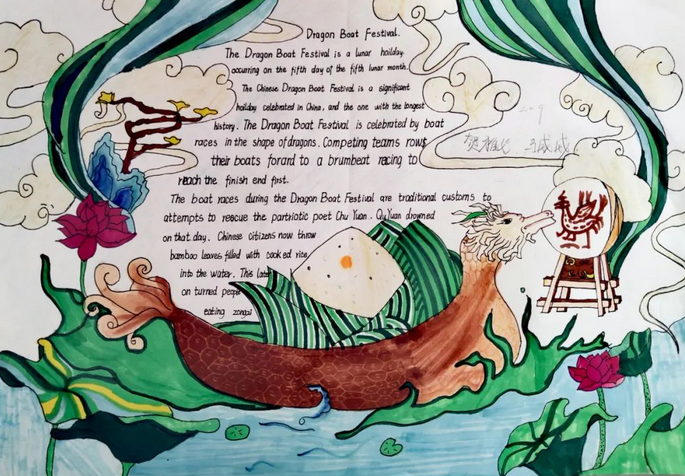 Dragon Boat Festival.
The Dragon Boat Festival is a lunar hoilday
occurring on the fifth day of the fifth lunar month.
The Chinese Dragon Boat Festival is a significant
hoilday celebrated in China, and the one with the longest
history. The Dragon Boat Festival is celebrated by boat
races in the shape of dragons. Competing teams rows
their boats forard to a brumbeat racing to
reach the finish end first.
The boat races during the Dragon Boat Festival are traditional customs to
attempts to rescue the partriotic poet Chu Yuan. Qu Yuan drowned
on that day. Chinese citizens now throw
bamboo leaves filled with cooked rice
into the water. This later
on turned people
eating zongzi